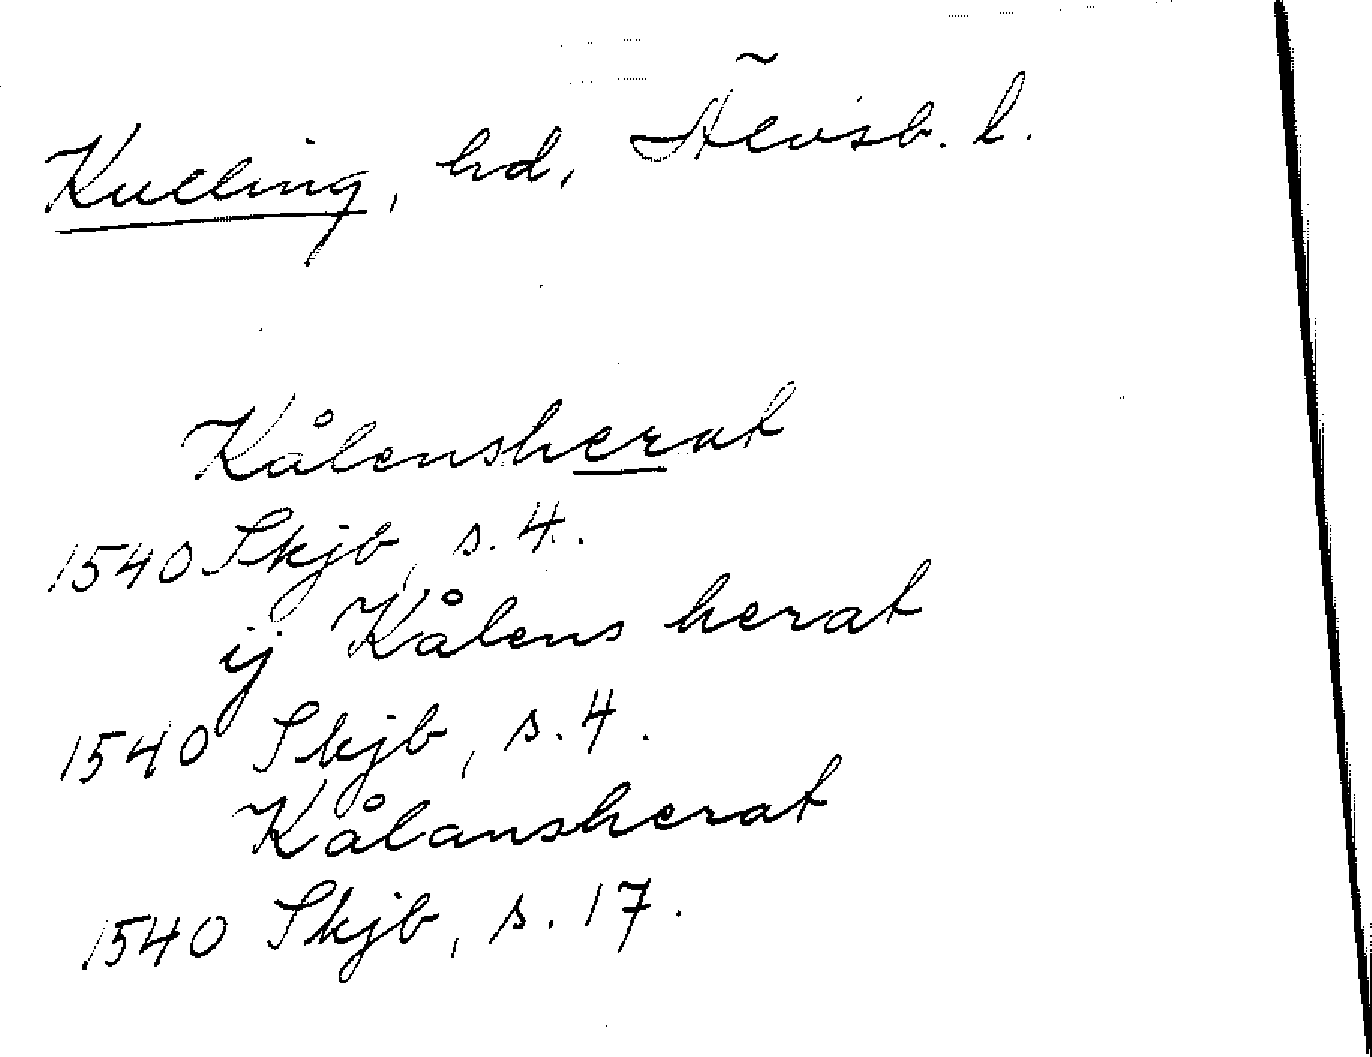 Kulling, hd, Älvsb. l.
Kålensherat
1540 Skjb, s. 4.
ij Kålens herat
1540 Skjb, s. 4.
Kålansherat
1540 Skjb, s. 17.